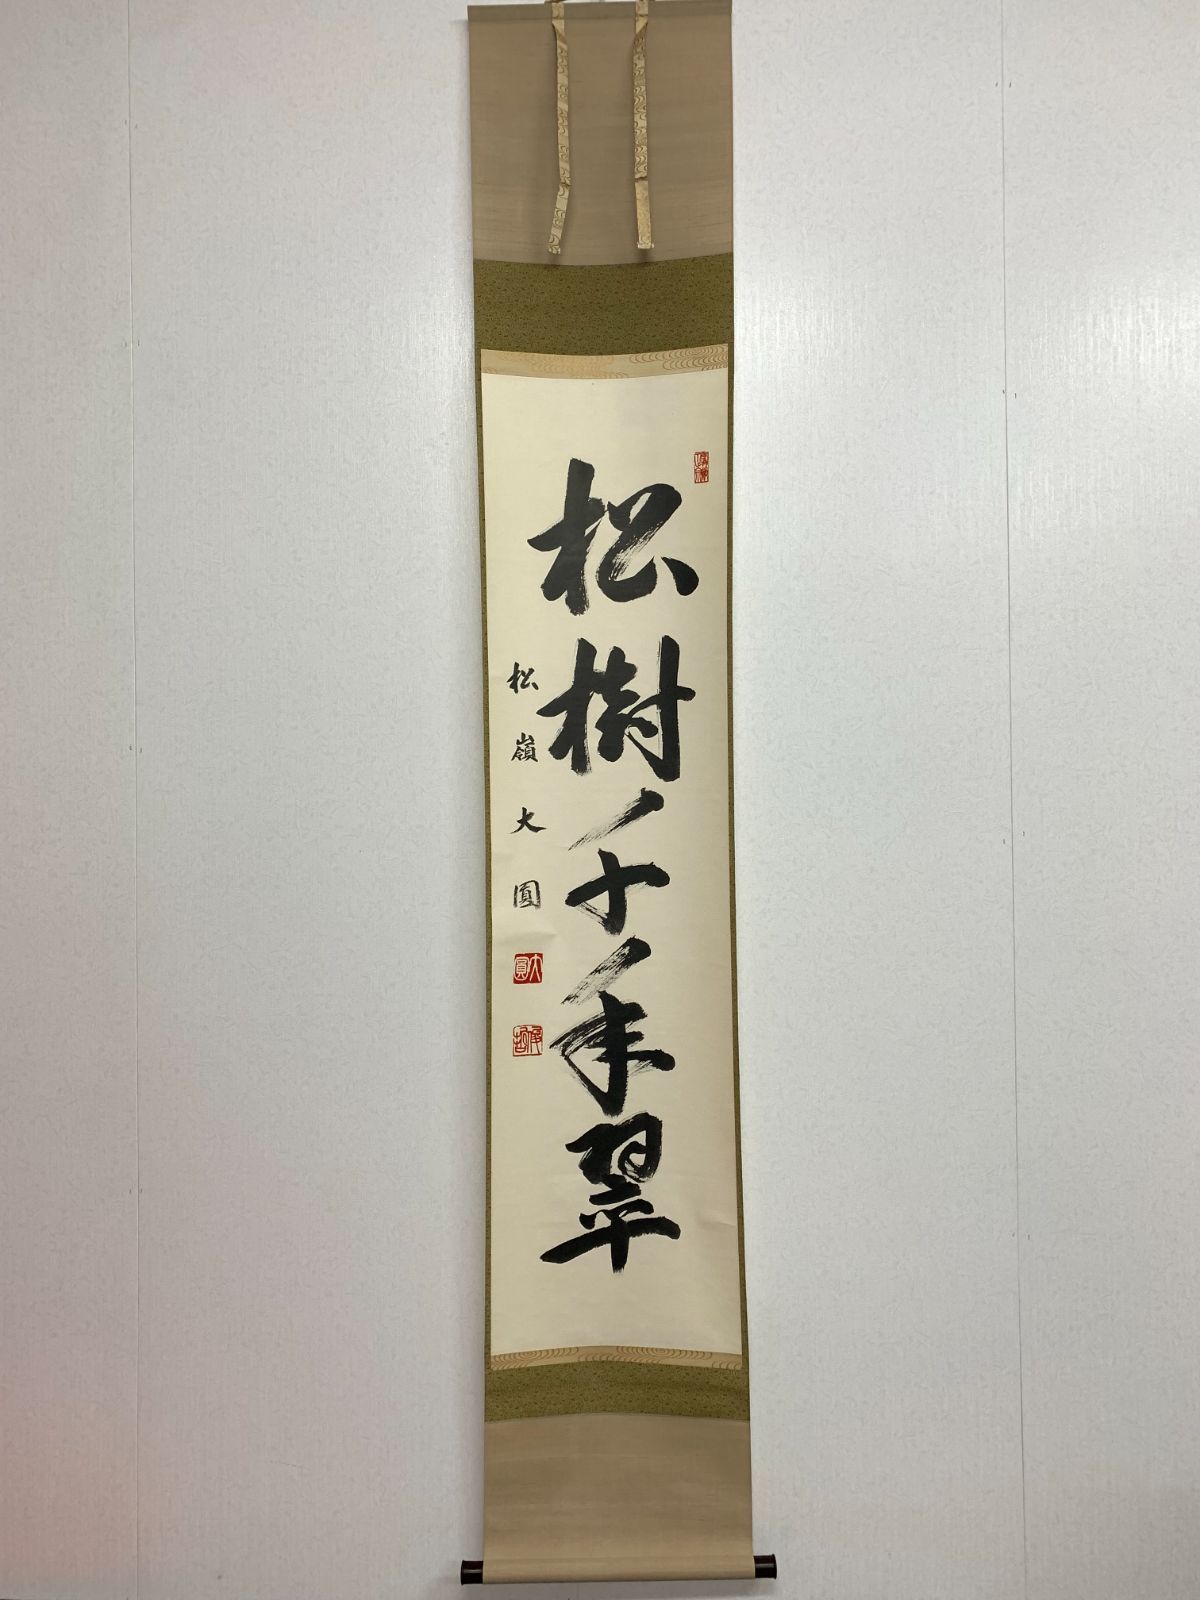 松樹千年翠
松嶺大圓
大圓